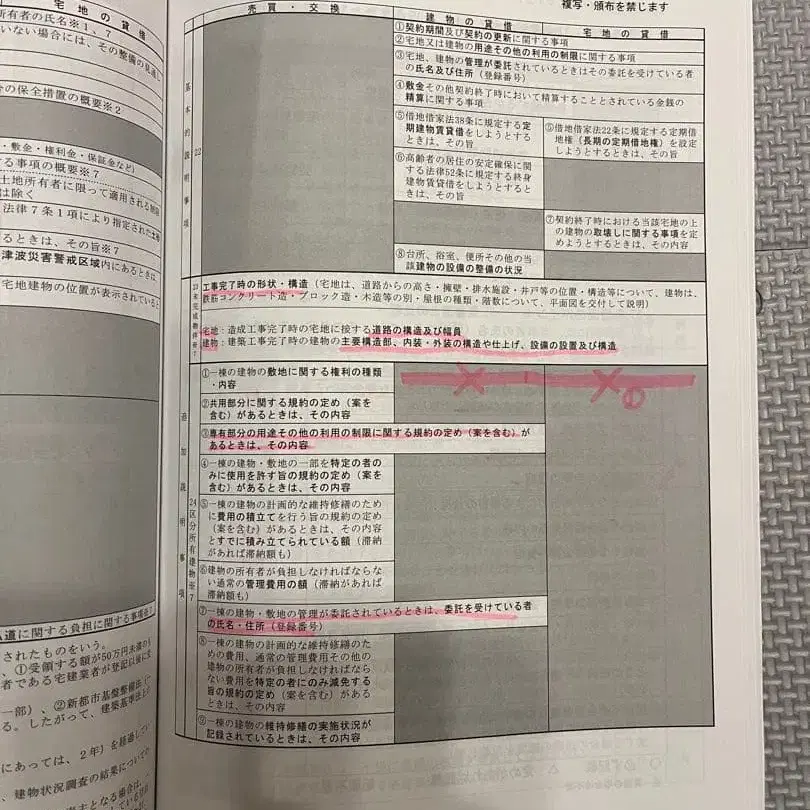 複写・頒布を禁じます
売買・交換
建物の貸借
宅地の貸借
基本的説明事項
22
①契約期間及び契約の更新に関する事項
②宅地又は建物の用途その他の利用の制限に関する事項
③宅地、建物の管理が委託されているときはその委託を受けている者
の氏名及び住所（登録番号）
④敷金その他契約終了時において精算することとされている金銭の
精算に関する事項
⑤借地借家法38条に規定する定
期建物賃貸借をしようとする
ときは、その旨
⑤借地借家法22条に規定する定期借
地権（長期の定期借地権）を設定
しようとするときは、その旨
⑥高齢者の居住の安定確保に関
する法律52条に規定する終身
建物賃貸借をしようとすると
きは、その旨
⑦契約終了時における当該宅地の上
の建物の取壊しに関する事項を定
めようとするときは、その内容
⑧台所、浴室、便所その他の当
該建物の設備の整備の状況
23未完成物件等※7
工事完了時の形状・構造（宅地は、道路からの高さ・擁壁・排水施設・井戸等の位置・構造等について、建物は、
鉄筋コンクリート造・ブロック造・木造等の別・屋根の種類・階数について、平面図を交付して説明）
宅地：造成工事完了時の宅地に接する道路の構造及び幅員
建物：建築工事完了時の建物の主要構造部、内装・外装の構造や仕上げ、設備の設置及び構造
追加説明事項
24区分所有建物※7
①一棟の建物の敷地に関する権利の種類
・内容
②共用部分に関する規約の定め（案を
含む）があるときは、その内容
③専有部分の用途その他の利用の制限に関する規約の定め（案を含む）が
あるときは、その内容
④一棟の建物・敷地の一部を特定の者の
みに使用を許す旨の規約の定め（案を
含む）があるときは、その内容
⑤一棟の建物の計画的な維持修繕のため
に費用の積立てを行う旨の規約の定め
（案を含む）があるときは、その内容
とすでに積み立てられている額（滞納
があれば滞納額も）
⑥建物の所有者が負担しなければならな
い通常の管理費用の額（滞納があれば
滞納額も）
⑦一棟の建物・敷地の管理が委託されているときは、委託を受けている者
の氏名・住所（登録番号）
⑧一棟の建物の計画的な維持修繕のた
めの費用、通常の管理費用その他の
建物の所有者が負担しなければなら
ない費用を特定の者にのみ減免する
旨の規約の定め（案を含む）がある
ときは、その内容
⑨一棟の建物の維持修繕の実施状況が
記録されているときは、その内容
宅地の貸借
所有者の氏名※1、7
いない場合には、その整備の見通し
の保全措置の概要※2
・敷金・権利金・保証金など）
する事項の概要※7
土地所有者に限って適用される制限
は除く
法律7条1項により指定された
るときは、その旨※7
津波災害警戒区域内にあるときは、
宅地建物の位置が表示されている
道に関する負担に関する事項
されたものをいう。
、①受領する額が50万円未満の
者である宅建業者が登記以後に
一部）、②新都市基盤整備法
る。したがって、建築基準法上の
にあっては、2年）を経過し
、建物状況調査の結果について
売主となる場合は、